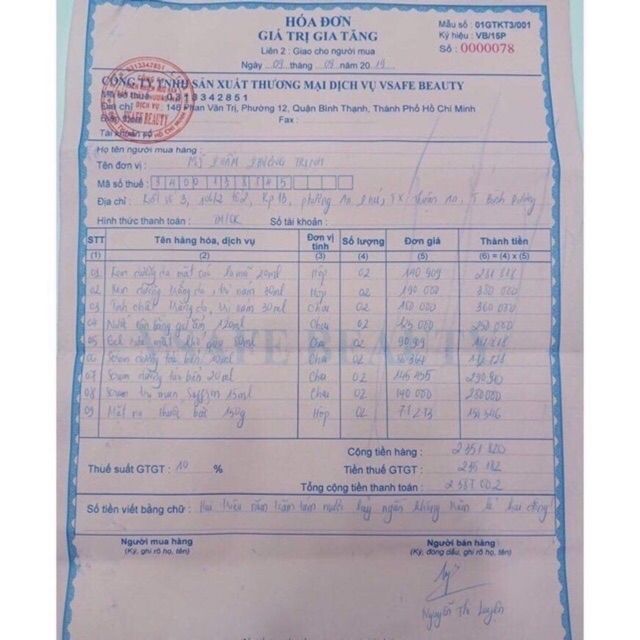 HÓA ĐƠN
GIÁ TRỊ GIA TĂNG
Liên 2 : Giao cho người mua
Ngày 09 tháng 09 năm 2019
Mẫu số : 01GTKT3/001
Ký hiệu : VB/15P
Số : 0000078
CÔNG TY TNHH SẢN XUẤT THƯƠNG MẠI DỊCH VỤ VSAFE BEAUTY
Mã số thuế : 0313342851
Địa chỉ : 146 Phan Văn Trị, Phường 12, Quận Bình Thạnh, Thành Phố Hồ Chí Minh
Điện thoại : Fax :
Tài khoản số :
Họ tên người mua hàng :
Tên đơn vị : MỸ PHẨM PHƯƠNG TRINH
Mã số thuế :
Địa chỉ : 3, KP 1B, phường An Phú, TX Thuận An, T Bình Dương
Hình thức thanh toán : TM/CK Số tài khoản :
STT Tên hàng hóa, dịch vụ Đơn vị tính Số lượng Đơn giá Thành tiền
(1) (2) (3) (4) (5) (6) = (4) x (5)
01 Kem dưỡng da mặt 20ml Hộp 02 140 909 281 818
02 Kem dưỡng trắng da, trị nám 30ml Hộp 02 190 000 380 000
03 Tinh chất trắng da, trị nám 30ml Chai 02 180 000 360 000
04 Nước 120ml Chai 02 125 000 250 000
05 Gel rửa mặt Chai 02 90.909 181 818
06 Serum dưỡng tảo biển 10ml Chai 02
07 Serum dưỡng tảo biển 20ml Chai 02 145 455 290 910
08 Serum trị mụn Saffron 15ml Chai 02 140 000 280 000
09 Mặt nạ thuốc bắc 150g Hộp 02 77 273 154 546
VSAFE BEAUTY
Cộng tiền hàng : 2 351 820
Thuế suất GTGT : 10 % Tiền thuế GTGT : 235 182
Tổng cộng tiền thanh toán : 2 587 002
Số tiền viết bằng chữ : Hai triệu năm trăm tám mươi bảy ngàn không trăm lẻ hai đồng
Người mua hàng Người bán hàng
(Ký, ghi rõ họ, tên) (Ký, đóng dấu, ghi rõ họ, tên)
Nguyễn Thị Luyến